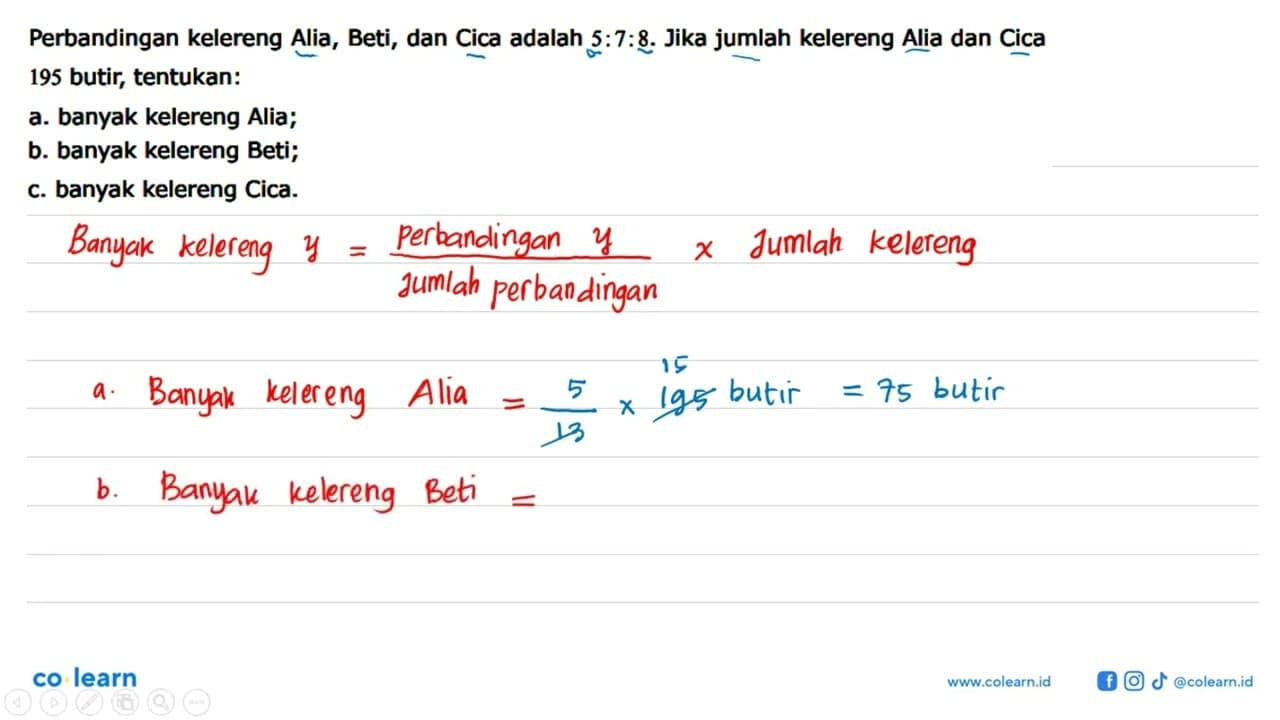 Perbandingan kelereng Alia, Beti, dan Cica adalah 5:7:8. Jika jumlah kelereng Alia dan Cica
195 butir, tentukan:
a. banyak kelereng Alia;
b. banyak kelereng Beti;
c. banyak kelereng Cica.
Banyak kelereng y = perbandingan y / Jumlah perbandingan x Jumlah kelereng
15
a. Banyak kelereng Alia = 5/13 x 195 butir = 75 butir
b. Banyak kelereng Beti =
co learn
www.colearn.id
@colearn.id